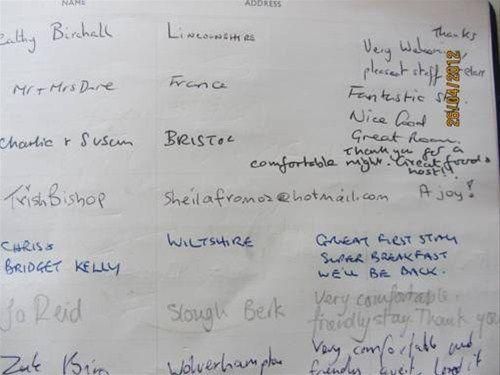 NAME ADDRESS
Cathy Birchall LINCOLNSHIRE Thanks
Very Welcoming,
pleasant staff
Mr + Mrs Dare France Fantastic
Nice food
Charlie + Susan BRISTOL Great Room.
Thank you for a
comfortable night. Great food &
host!!
Trish Bishop sheilafromoz@hotmail.com A joy!
CHRIS &
BRIDGET KELLY WILTSHIRE GREAT FIRST STAY
SUPER BREAKFAST
WE'LL BE BACK.
Jo Reid Slough Berk Very comfortable
friendly stay. Thank you
Wolverhampton Very comfortable and
friendly
28/04/2012